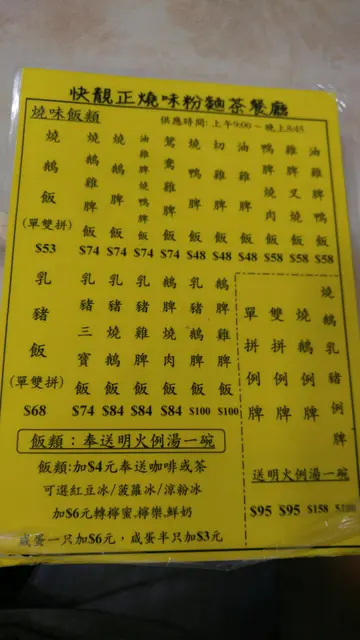 快靚正燒味粉麵茶餐廳
燒味飯類
供應時間: 上午9:00 ~ 晚上8:45
燒鵝飯
(單雙拼)
$53
燒鵝雞脾飯
$74
燒鵝脾飯
$74
油雞脾燒鴨脾飯
$74
鴛鴦脾飯
$74
燒鴨脾飯
$48
切雞脾飯
$48
油雞脾飯
$48
鴨脾燒肉飯
$58
雞脾叉燒飯
$58
油雞脾鴨飯
$58
乳豬飯
(單雙拼)
$68
乳豬三寶飯
$74
乳豬燒鵝飯
$84
乳豬雞脾飯
$84
鵝脾燒肉飯
$84
乳豬鵝脾飯
$100
鵝脾雞脾飯
$100
單拼例牌
雙拼例牌
燒鵝例牌
燒鵝乳豬例牌
送明火例湯一碗
$95 $95 $158
飯類：奉送明火例湯一碗
飯類:加$4元奉送咖啡或茶
可選紅豆冰/菠蘿冰/涼粉冰
加$6元轉檸蜜.檸樂.鮮奶
咸蛋一只加$6元，咸蛋半只加$3元